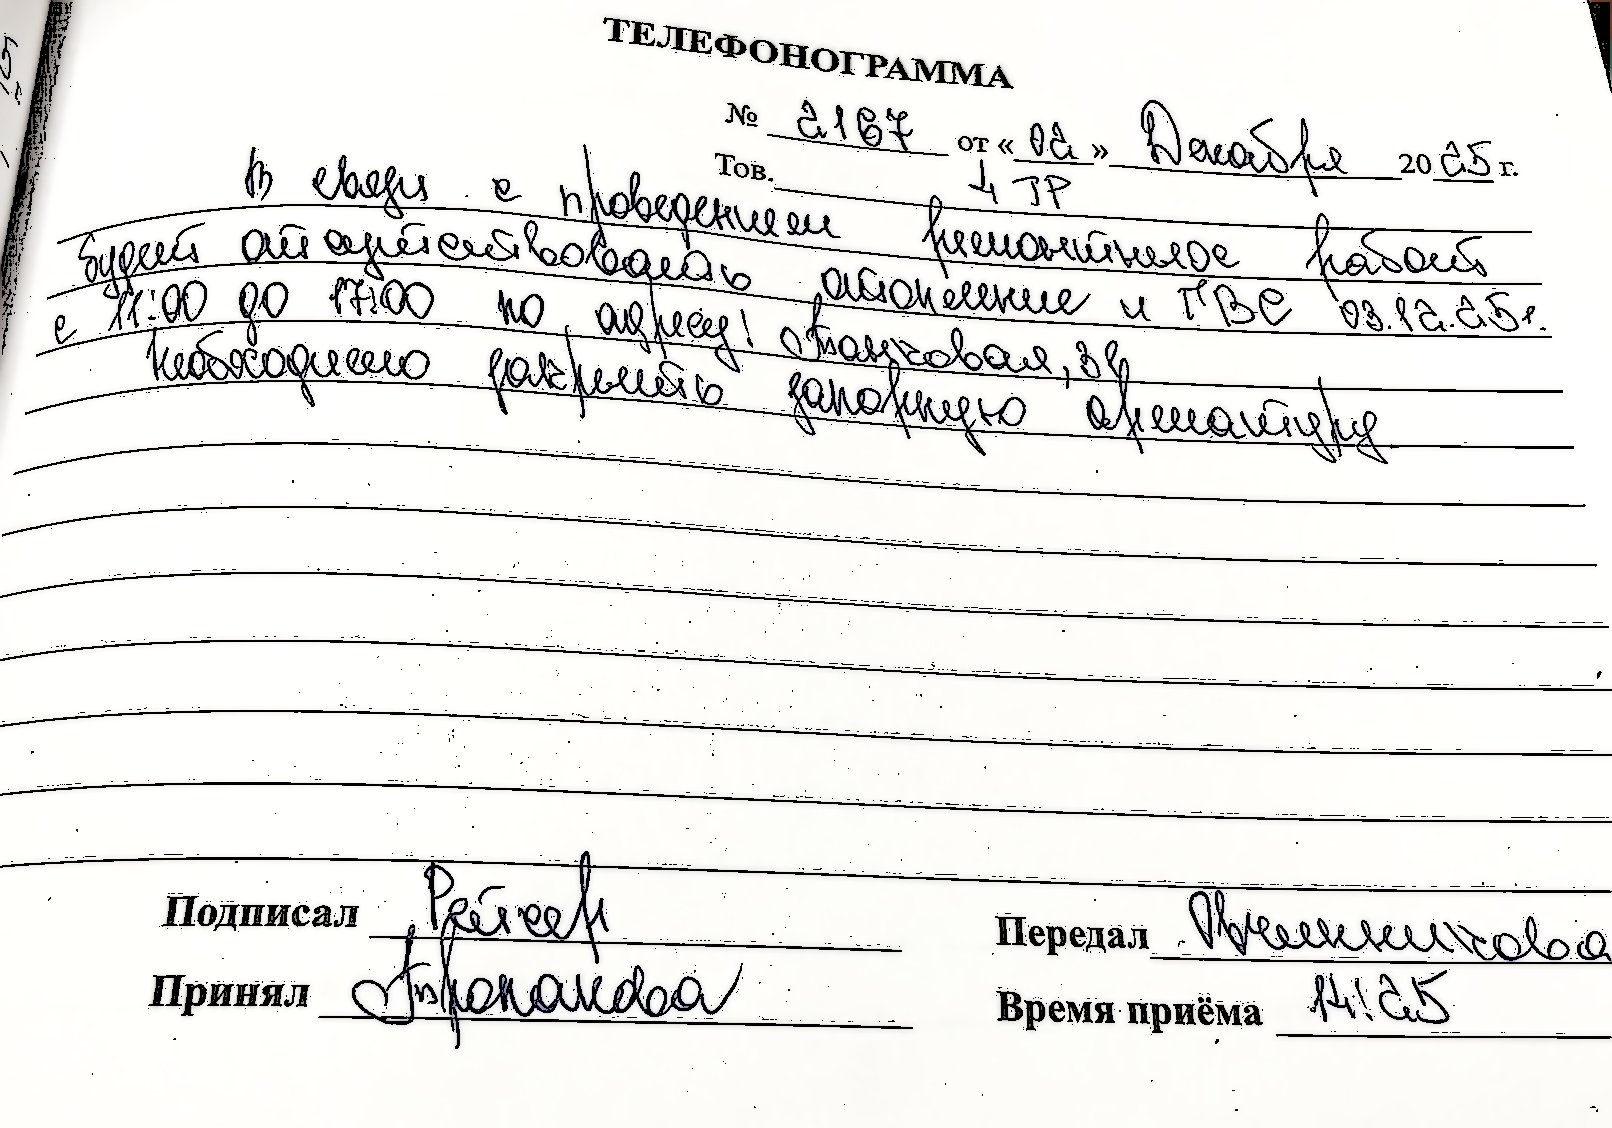 ТЕЛЕФОНОГРАММА
№ 2167 от «02» Декабря 2025 г.
Тов. ЦТР
В связи с проведением ремонтных работ
будет отсутствовать отопление и ГВС 03.12.25г.
с 11:00 до 17:00 по адресу:
Необходимо закрыть запорную арматуру
Подписал
Передал
Принял
Время приёма 14:25